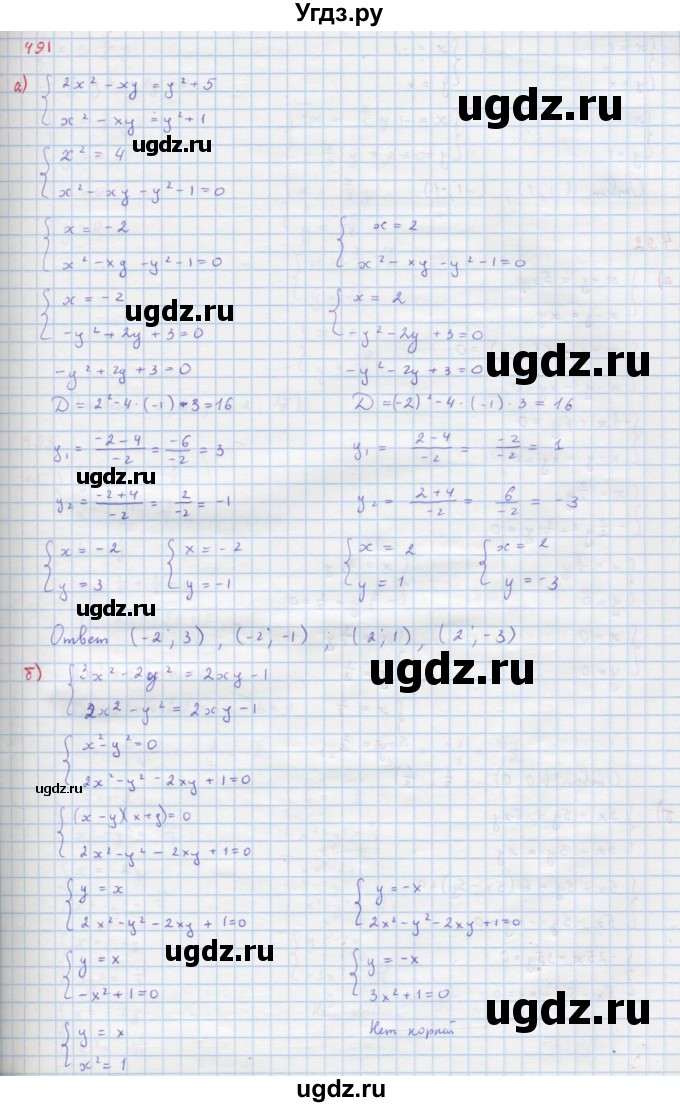 Угдз.ру
491
а) { 2x² - xy = y² + 5
x² - xy = y² + 1
ugdz.ru
ugdz.ru
{ x² = 4
x² - xy - y² - 1 = 0
{ x = -2
x² - xy - y² - 1 = 0
{ x = 2
x² - xy - y² - 1 = 0
{ x = -2
-y² + 2y + 3 = 0
{ x = 2
-y² - 2y + 3 = 0
ugdz.ru
ugdz.ru
-y² + 2y + 3 = 0
-y² - 2y + 3 = 0
D = 2² - 4 · (-1) · 3 = 16
D = (-2)² - 4 · (-1) · 3 = 16
y₁ = (-2-4)/(-2) = (-6)/(-2) = 3
y₁ = (2-4)/(-2) = (-2)/(-2) = 1
ugdz.ru
y₂ = (-2+4)/(-2) = 2/(-2) = -1
y₂ = (2+4)/(-2) = 6/(-2) = -3
{ x = -2
y = 3
{ x = -2
y = -1
{ x = 2
y = 1
{ x = 2
y = -3
ugdz.ru
Ответ (-2; 3), (-2; -1); (2; 1), (2; -3)
ugdz.ru
б) { 3x² - 2y² = 2xy - 1
2x² - y² = 2xy - 1
{ x² - y² = 0
2x² - y² - 2xy + 1 = 0
ugdz.ru
{ (x - y)(x + y) = 0
2x² - y² - 2xy + 1 = 0
ugdz.ru
{ y = x
2x² - y² - 2xy + 1 = 0
{ y = -x
2x² - y² - 2xy + 1 = 0
ugdz.ru
{ y = x
-x² + 1 = 0
{ y = -x
3x² + 1 = 0
ugdz.ru
{ y = x
x² = 1
Нет корней
ugdz.ru